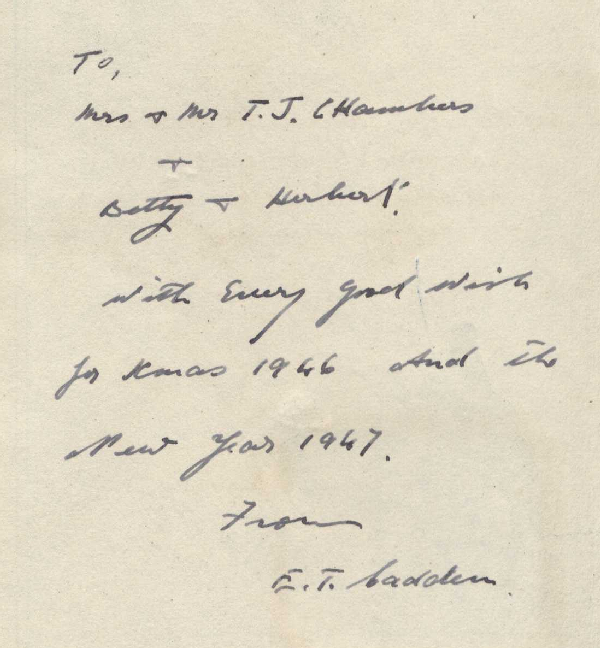 To,
Mrs + Mr T.J. CHambers
+
Betty + Herbert.
with Every good wish
for Xmas 1946 And the
New Year 1947.
From
E.T. Cadden.